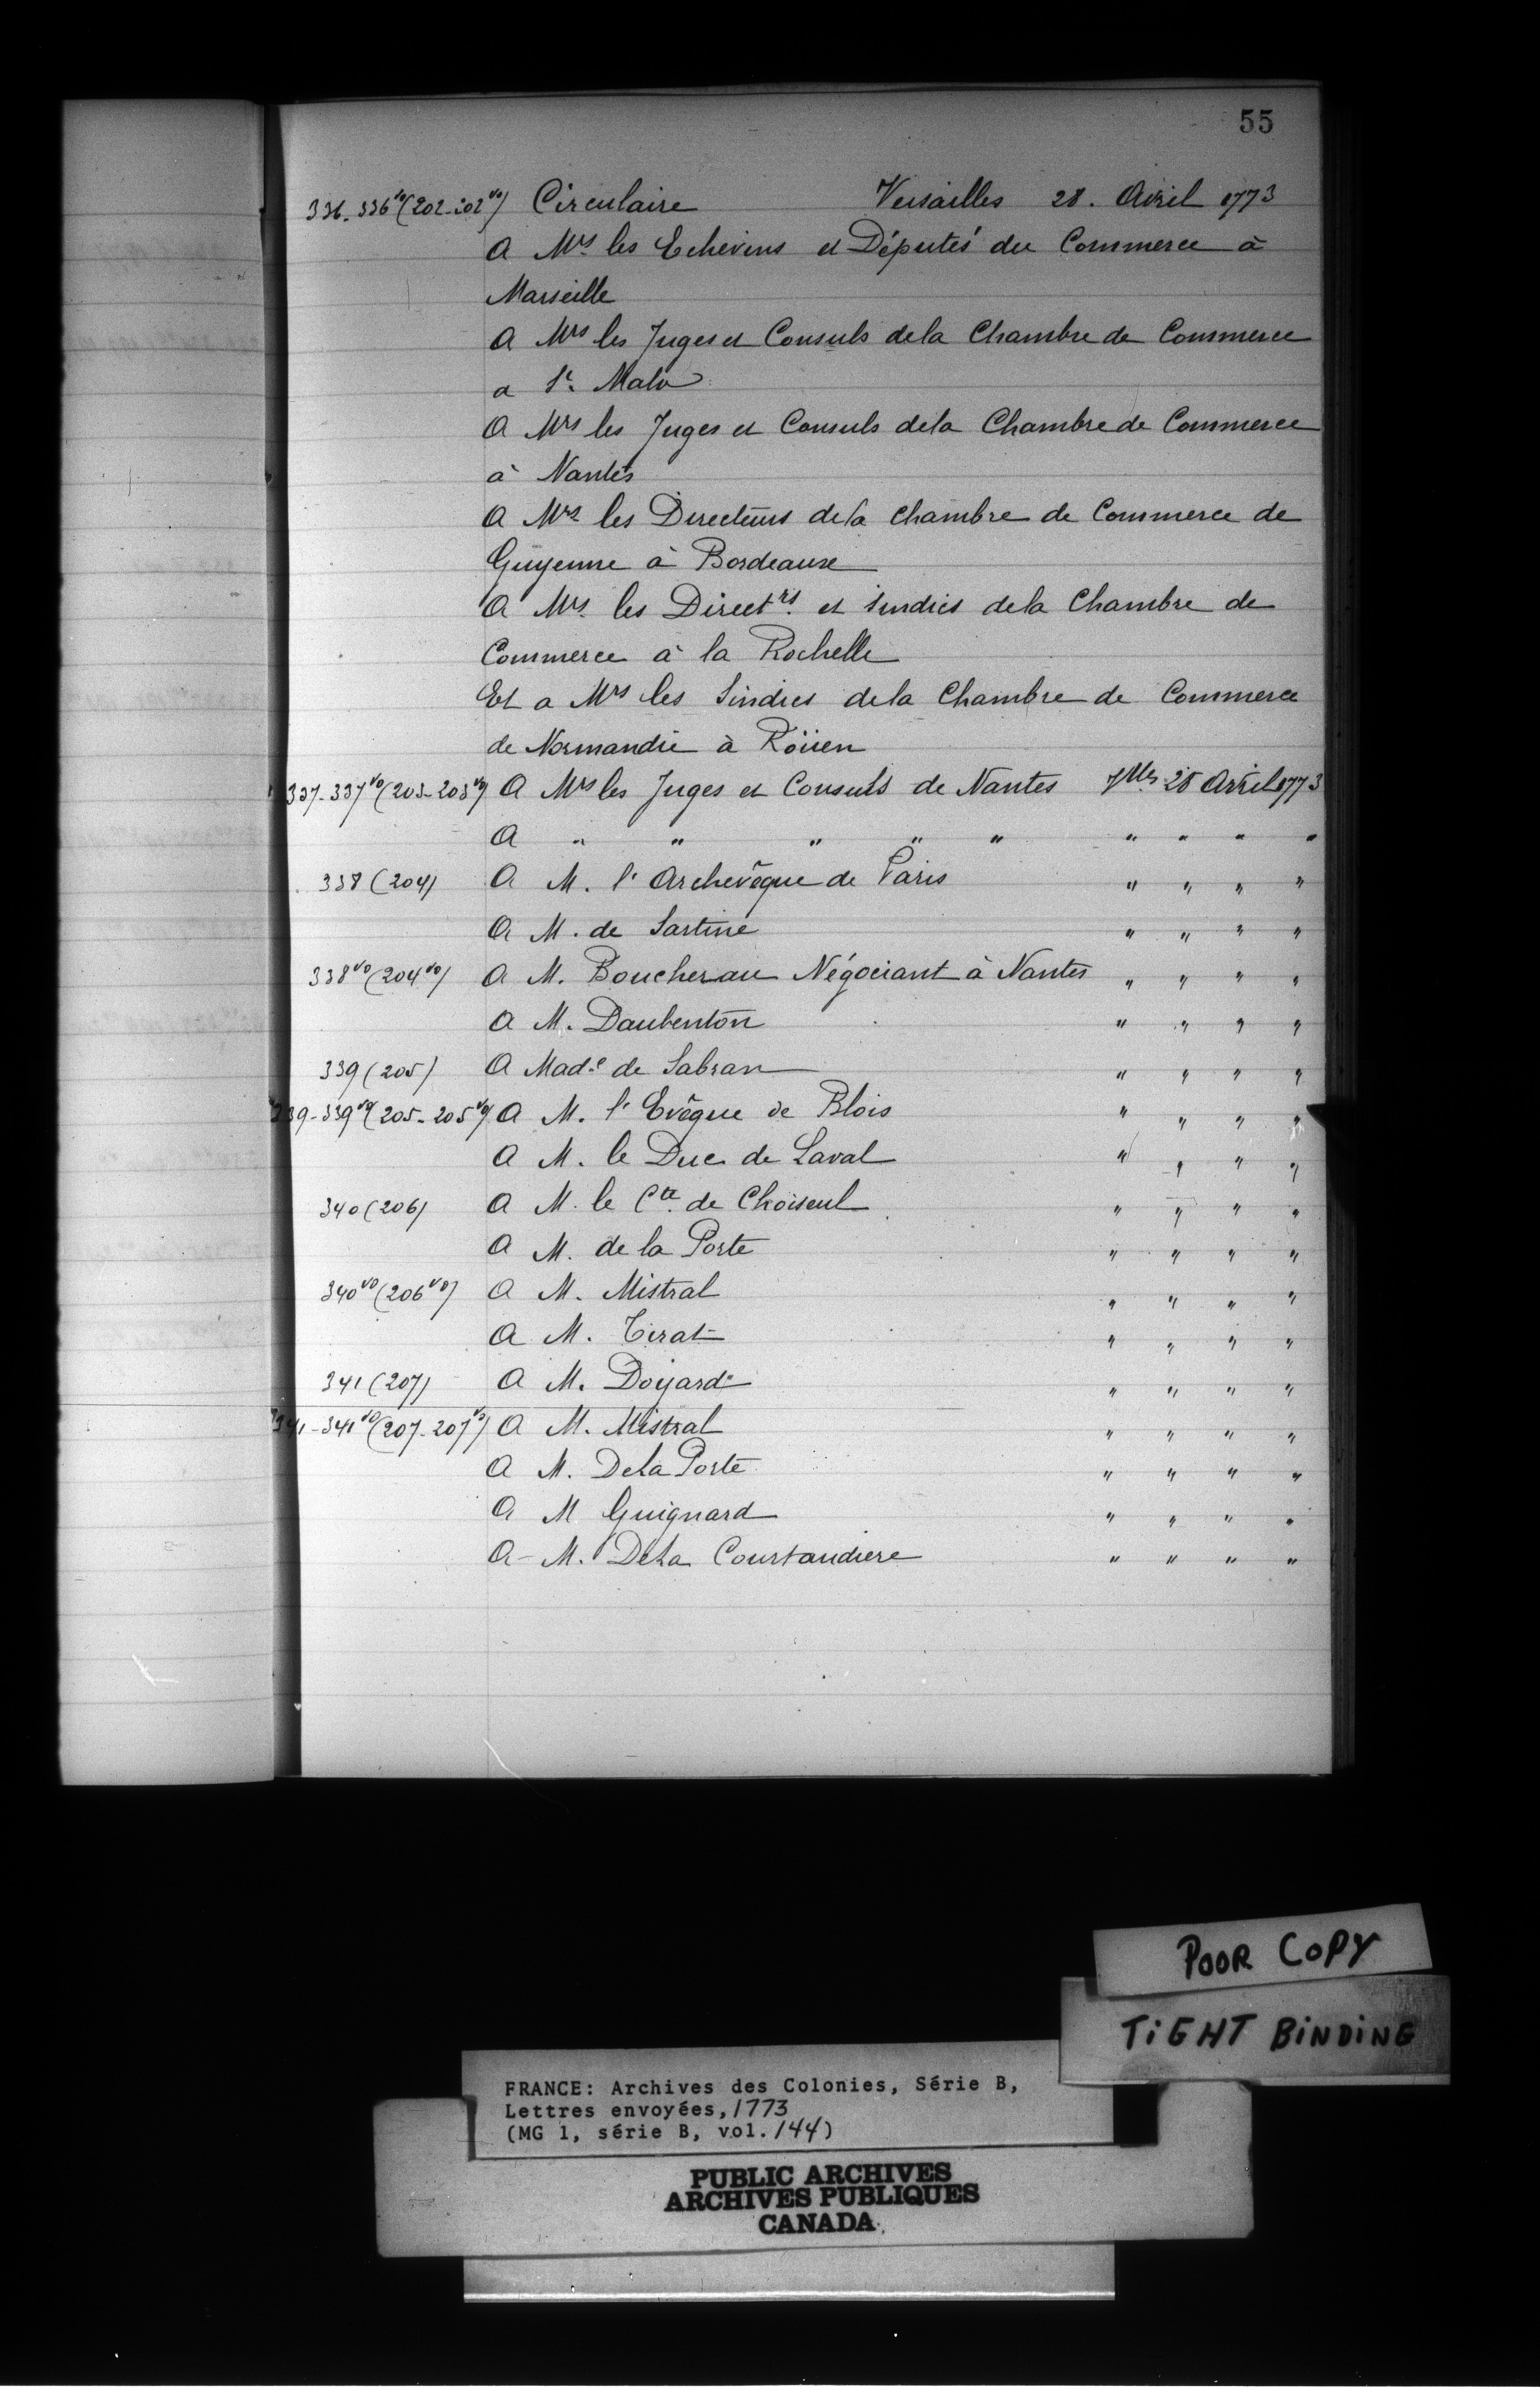 55
336-336vo (202-202vo) Circulaire Versailles 28. Avril 1773
A Mrs les Echevins et Députés du Commerce à
Marseille
A Mrs les Juges et Consuls de la Chambre de Commerce
a St. Malo
A Mrs les Juges et Consuls de la Chambre de Commerce
à Nantes
A Mrs les Directeurs de la chambre de Commerce de
Guyenne à Bordeaux
A Mrs les Directrs. et sindics de la Chambre de
Commerce à la Rochelle
Et a Mrs les Sindics de la Chambre de Commerce
de Normandie à Roüen
337-337vo (203-203vo) A Mrs les Juges et Consuls de Nantes Vlles 28 Avril 1773
A " " " " " " " " "
338 (204) A M. l'Archevêque de Paris " " " "
A M. de Sartine " " " "
338vo (204vo) A M. Bouchereau Négociant à Nantes " " " "
A M. Daubenton " " " "
339 (205) A Made de Sabran " " " "
339-339vo (205-205vo) A M. l'Evêque de Blois " " " "
A M. le Duc de Laval " " " "
340 (206) A M. le Cte de Choiseul " " " "
A M. de la Porte " " " "
340vo (206vo) A M. Mistral " " " "
A M. Tirat " " " "
341 (207) A M. Doyard " " " "
341-341vo (207-207vo) A M. Mistral " " " "
A M. De la Porte " " " "
A M Guignard " " " "
A M. De la Courtaudiere " " " "
POOR COPY
TiGHT BiNDiNG
FRANCE: Archives des Colonies, Série B,
Lettres envoyées, 1773
(MG 1, série B, vol. 144)
PUBLIC ARCHIVES
ARCHIVES PUBLIQUES
CANADA